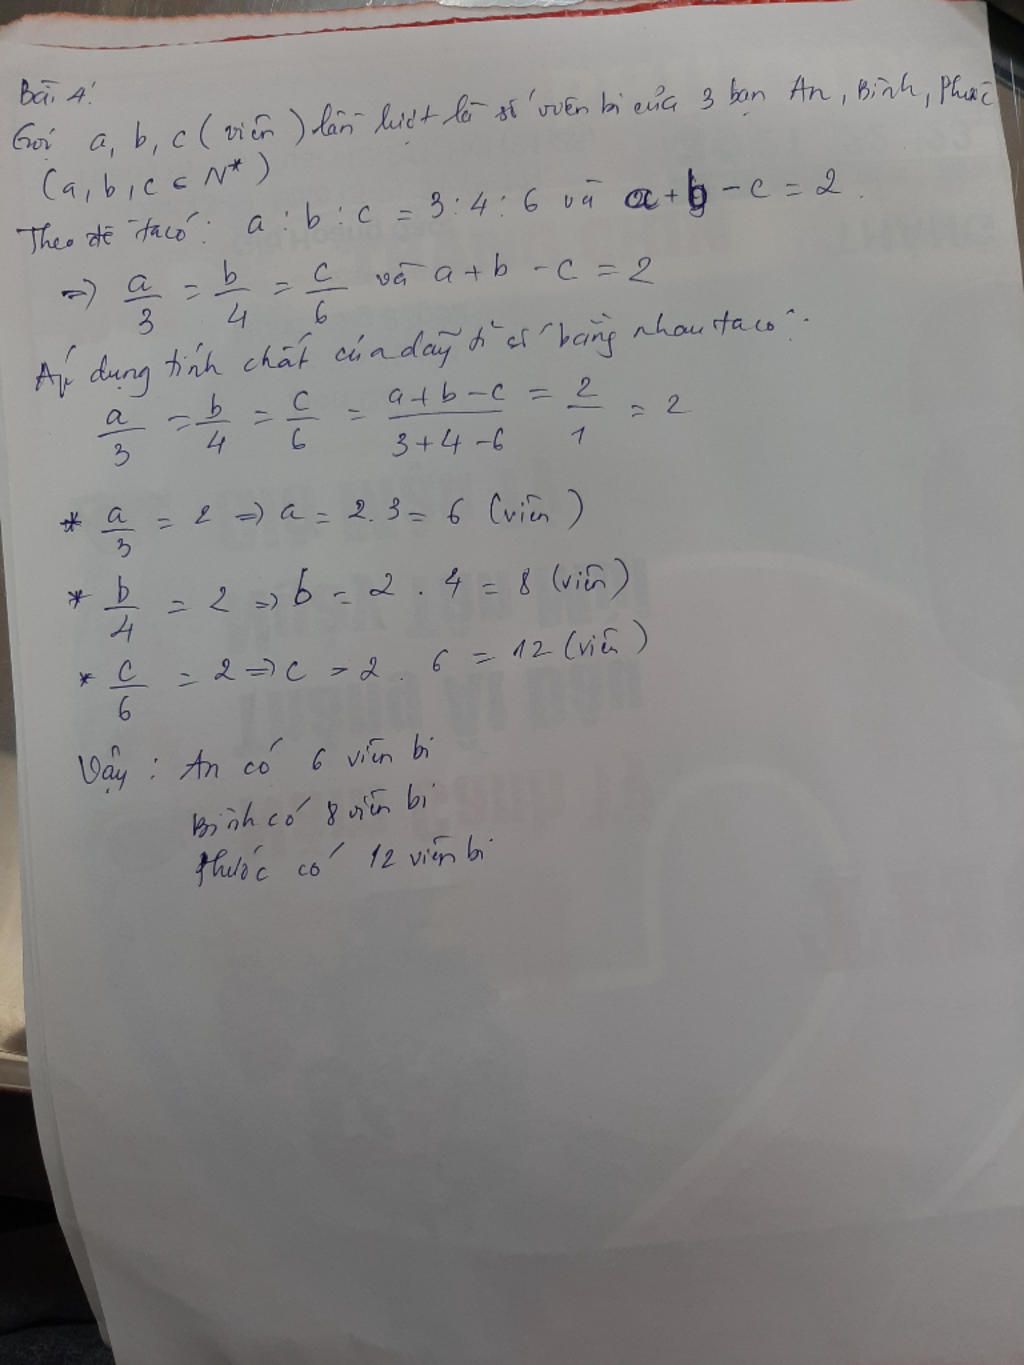 Bài 4:
Gọi a, b, c (viên) lần lượt là số viên bi của 3 bạn An, Bình, Phước
(a, b, c ∈ N*)
Theo đề ta có: a : b : c = 3 : 4 : 6 và a + b - c = 2.
=> a/3 = b/4 = c/6 và a + b - c = 2
Áp dụng tính chất của dãy tỉ số bằng nhau ta có:
a/3 = b/4 = c/6 = (a + b - c)/(3 + 4 - 6) = 2/1 = 2
* a/3 = 2 => a = 2 . 3 = 6 (viên)
* b/4 = 2 => b = 2 . 4 = 8 (viên)
* c/6 = 2 => c = 2 . 6 = 12 (viên)
Vậy : An có 6 viên bi
Bình có 8 viên bi
Phước có 12 viên bi